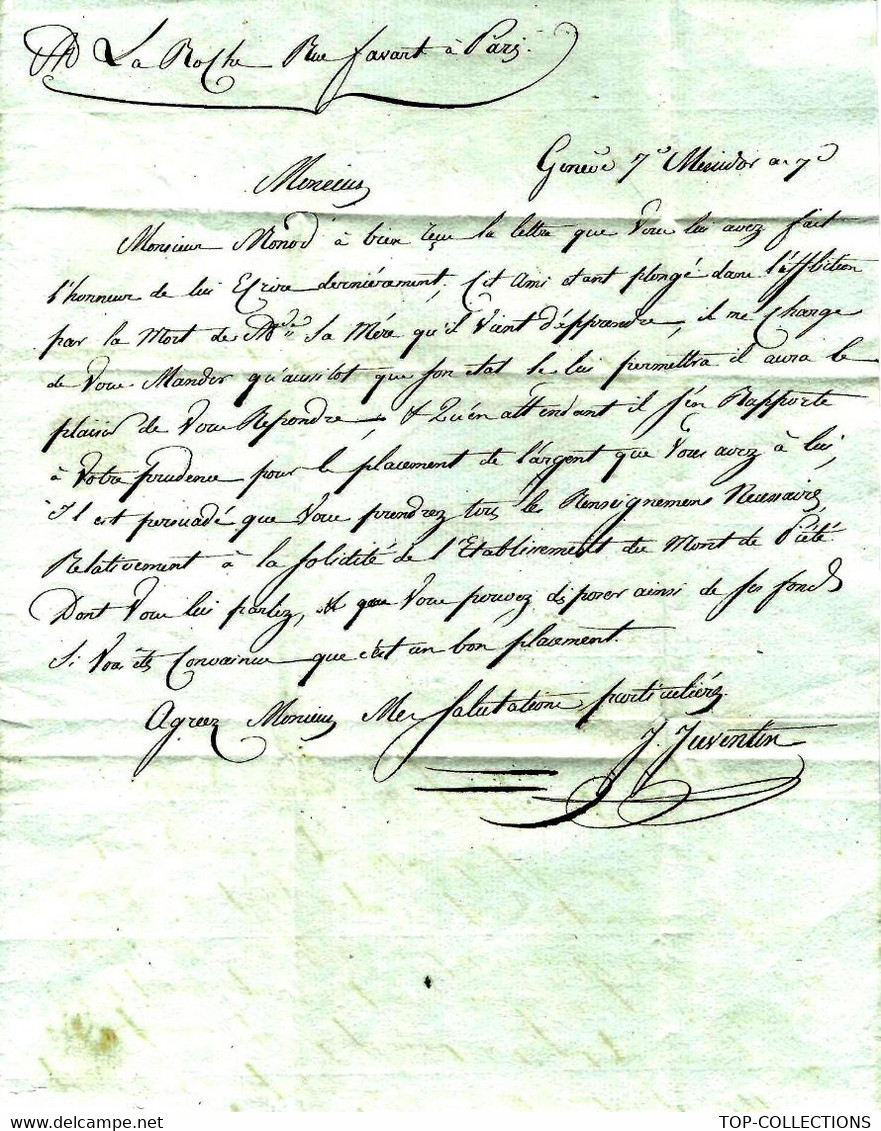 La Roche Rue favart à Paris
Genève 7e Messidor an 7e
Monsieur
Monsieur Monod à bien reçu la lettre que Vous lui avez fait
l'honneur de lui Ecrire derniérement, Cet Ami etant plongé dans l'affliction
par la Mort de Mde Sa Mére qu'il Vient d'apprendre, il me Charge
de Vous Mander qu'aussitot que son etat le lui permettra il aura le
plaisir de Vous Repondre, & Qu'en attendant il s'en Rapporte
à Votre prudence pour le placement de l'argent que Vous avez à lui,
Il est persuadé que Vous prendrez tous les Renseignemens Necessaires
Relativement à la solidité de l'Etablissement du Mont de Piété
Dont Vous lui parlez, & que Vous pouvez disposer ainsi de ses fonds
Si Vous êtes Convaincu que c'est un bon placement.
Agreez Monsieur Mes salutations particuliéres
J. Juventin
TOP-COLLECTIONS